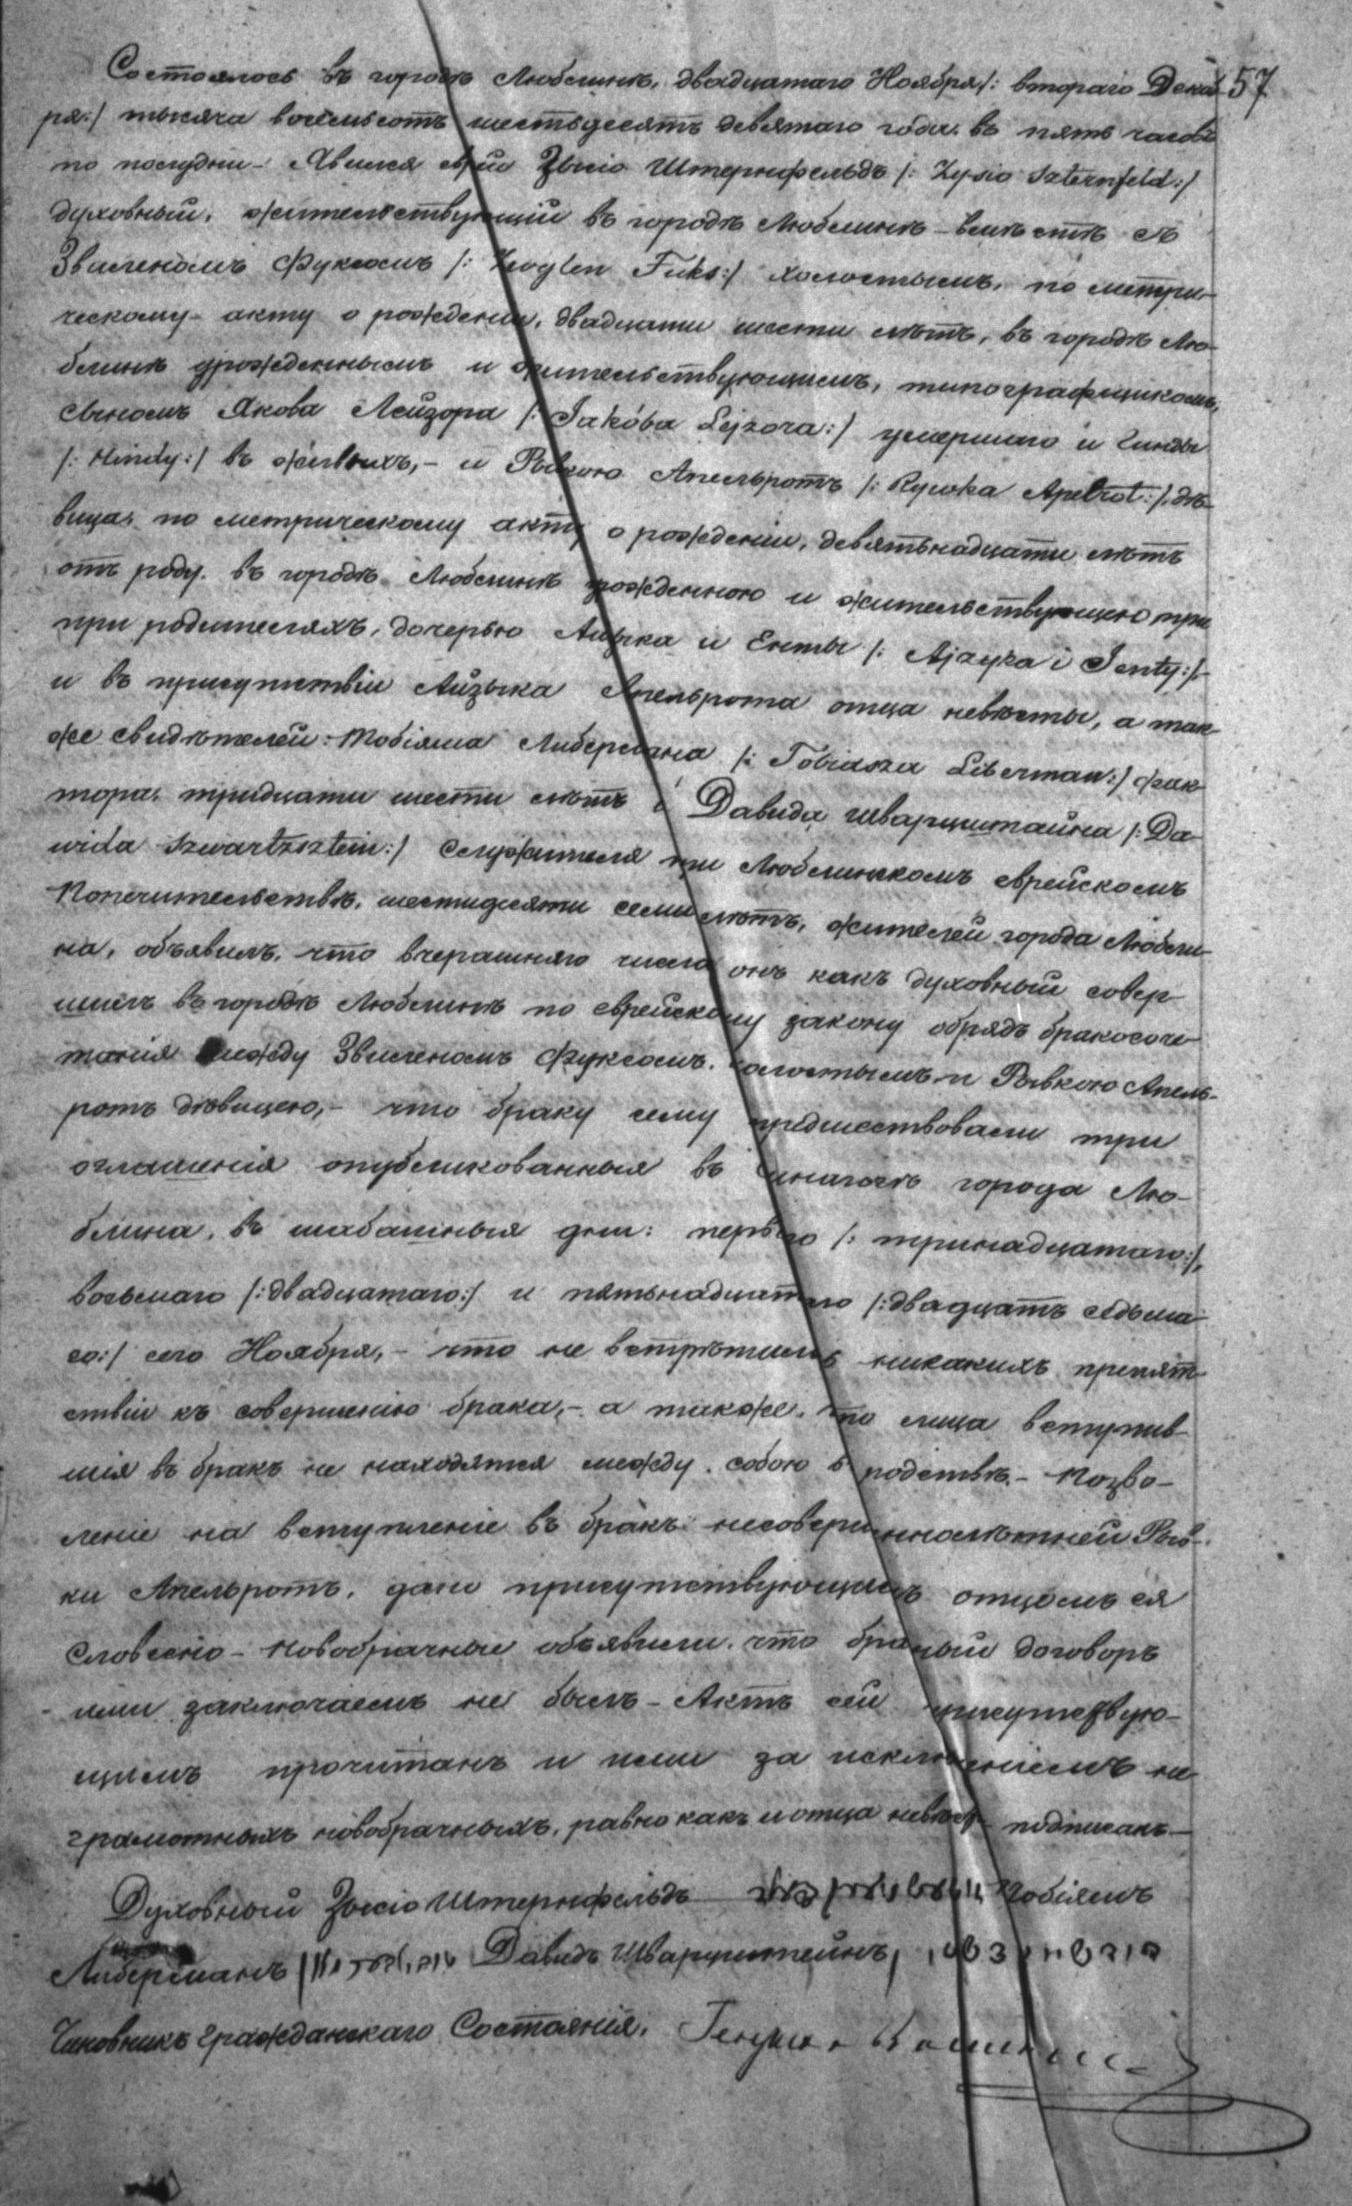 Состоялось въ городѣ Люблинѣ, двадцатаго Ноября /: втораго Декаб 57
ря:/ тысяча восемьсотъ шестьдесятъ девятаго года въ пять часовъ
по полудни – Явился Зысіо Штернфельдъ /: Zysio Szternfeld:/
духовный, жительствующій въ городѣ Люблинѣ – вмѣстѣ съ
Звигленомъ Фуксомъ /: Zwyglen Fuks:/ холостымъ, по метри-
ческому акту о рожденіи, двадцати шести лѣтъ, въ городѣ Лю-
блинѣ урожденнымъ и жительствующимъ, типографщикомъ,
сыномъ Якова Лейзора /: Jakóba Lejzora:/ умершаго и Гинды
/: Hindy:/ въ живыхъ, – и Рывкою Апельротъ /: Rywka Apelrot:/, дѣ-
вица, по метрическому акту о рожденіи, девятьнадцати лѣтъ
отъ роду, въ городѣ Люблинѣ урожденною и жительствующею при
при родителяхъ, дочерью Айзыка и Енты /: Ajzyka i Jenty:/ –
и въ присутствіи Айзыка Апельрота отца невѣсты, а так-
же свидѣтелей: Тобіяша Либермана /: Tobiasza Liberman:/ фак-
тора, тридцати шести лѣтъ и Давида Шварцштайна /: Da-
wida Szwartzsztein:/ служителя при Люблинскомъ еврейскомъ
Попечительствѣ, шестидесяти семи лѣтъ, жителей города Любли-
на, объявилъ, что вчерашняго числа онъ какъ духовный совер-
шилъ въ городѣ Люблинѣ по еврейскому закону обрядъ бракосоче-
танія между Звигленомъ Фуксомъ, холостымъ и Рывкою Апель-
ротъ дѣвицею, – что браку сему предшествовали три
оглашенія опубликованныя въ Синагогѣ города Лю-
блина, въ шабашныя дни: перваго /: тринадцатаго:/,
восьмаго /: двадцатаго:/ и пятьнадцатаго /: двадцать седьма-
го:/ сего Ноября, – что не встрѣтилось никакихъ препят-
ствій къ совершенію брака, – а также, что лица вступив-
шія въ бракъ не находятся между собою въ родствѣ. – Позво-
леніе на вступленіе въ бракъ несовершеннолѣтней Рыв-
ки Апельротъ, дано присутствующимъ отцомъ ея
словесно – Новобрачные объявили, что брачный договоръ
ими заключаемъ не былъ – Актъ сей присутствую-
щимъ прочитанъ и ими за исключеніемъ не-
грамотныхъ новобрачныхъ, равно какъ и отца невѣсты подписанъ –
Духовный Зысіо Штернфельдъ Тобіяшъ
Либерманъ Давидъ Шварцштейнъ
Чиновникъ Гражданскаго Состоянія.